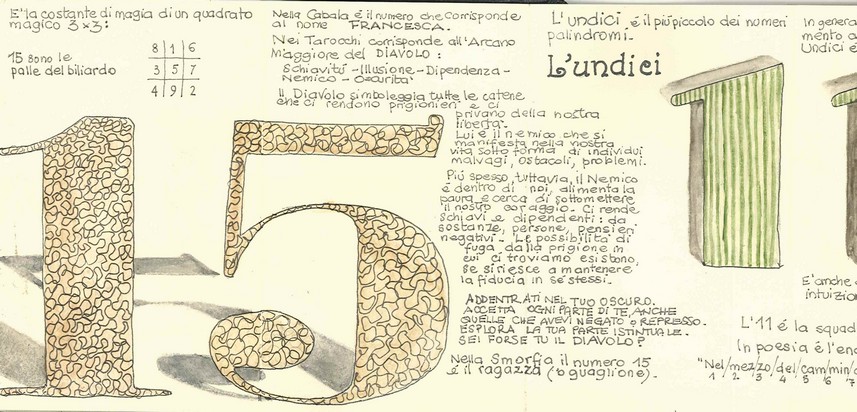 E' la costante di magia di un quadrato
magico 3×3:
15 sono le
palle del biliardo
8 1 6
3 5 7
4 9 2
15
Nella Cabala é il numero che corrisponde
al nome FRANCESCA.
Nei Tarocchi corrisponde all'Arcano
Maggiore del DIAVOLO:
Schiavitú - Illusione - Dipendenza -
Nemico - Oscurità
Il Diavolo simboleggia tutte le catene
che ci rendono prigionieri e ci
privano della nostra
libertà.
Lui é il nemico che si
manifesta nella nostra
vita sotto forma di individui
malvagi, ostacoli, problemi.
Piú spesso, tuttavia, il Nemico
é dentro di noi, alimenta la
paura e cerca di sottomettere
il nostro coraggio. Ci rende
schiavi e dipendenti: da
sostanze, persone, pensieri
negativi. Le possibilità di
fuga dalla prigione in
cui ci troviamo esistono,
se si riesce a mantenere
la fiducia in se stessi.
ADDENTRATI NEL TUO OSCURO.
ACCETTA OGNI PARTE DI TE, ANCHE
QUELLE CHE AVEVI NEGATO O REPRESSO.
ESPLORA LA TUA PARTE ISTINTUALE.
SEI FORSE TU IL DIAVOLO?
Nella Smorfia il numero 15
é il ragazzo ('o guaglione).
L'undici é il piú piccolo dei numeri
palindromi.
L'undici
1
In genera
mento a
Undici é
E'anche
intuizio
L'11 é la squad
In poesia é l'en
"Nel/mez/zo/del/cam/min/
1 2 3 4 5 6 7